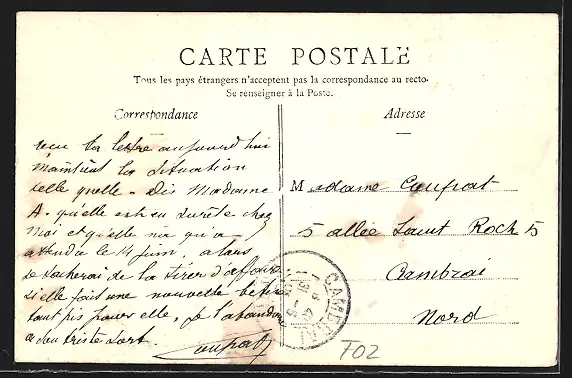 CARTE POSTALE
Tous les pays étrangers n'acceptent pas la correspondance au recto.
Se renseigner à la Poste.
Correspondance
Adresse
recu ta lettre aujourd hui
maintient la situation
telle quelle - Dis Madame
A. qu'elle est en sureté chez
moi et qu'elle n'a qu'a
attendre le 14 juin, alors
je tacherai de la tirer d'affaire
si elle fait une nouvelle betise
tant pis pour elle, je l'abandonne
a son triste sort.
Coupat
Madame Coupat
5 allée Saint Roch 5
Cambrai
Nord
CAMBRAI
F02